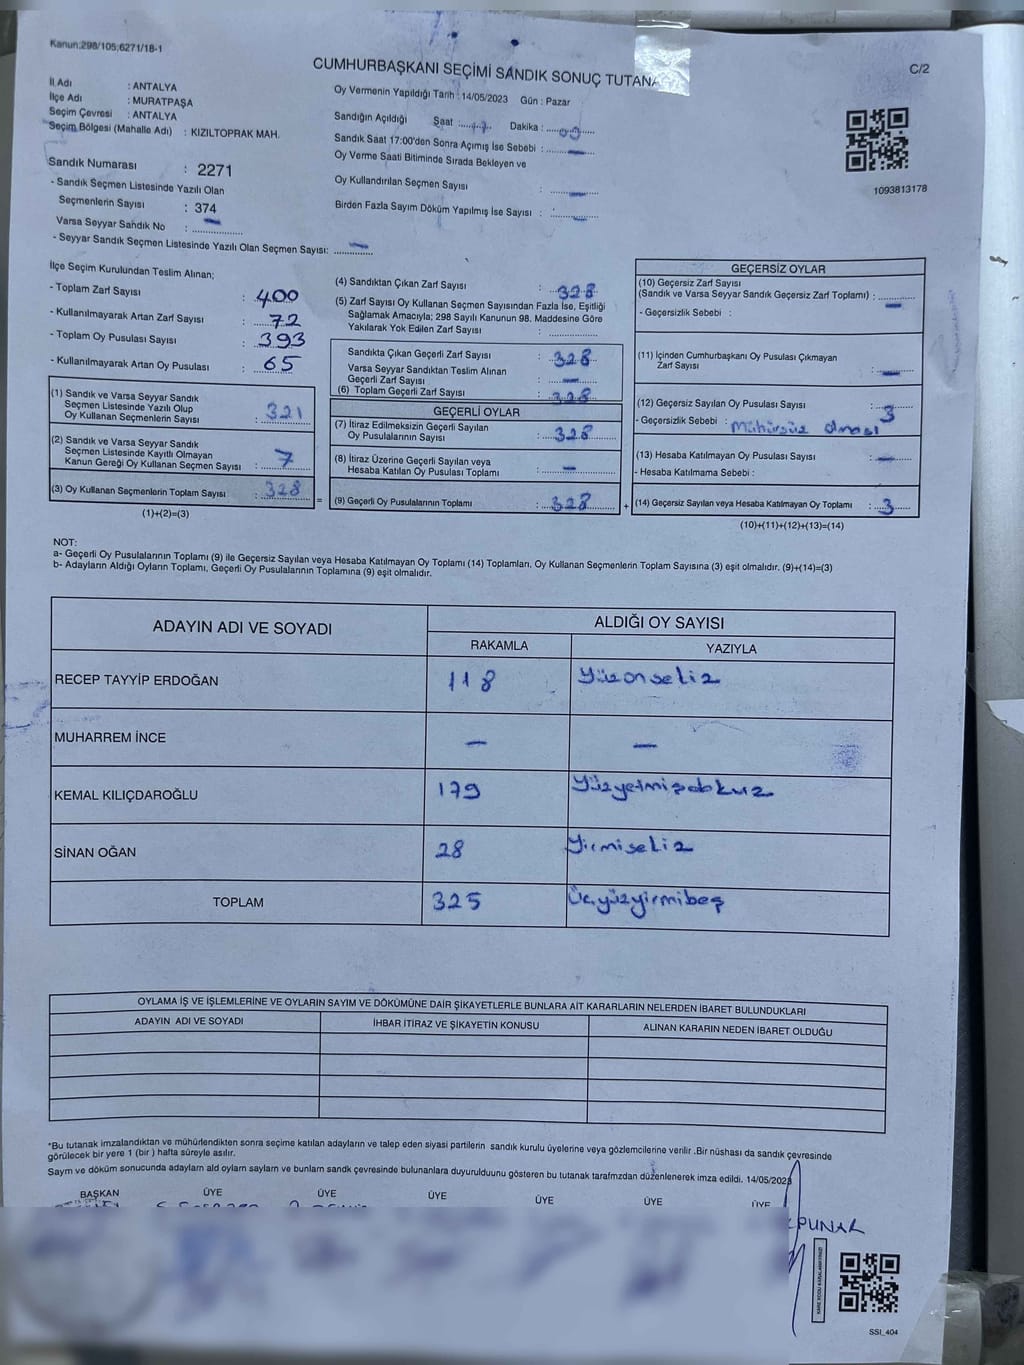 Kanun:298/105;6271/18-1
CUMHURBAŞKANI SEÇİMİ SANDIK SONUÇ TUTANA
C/2
İl Adı : ANTALYA
İlçe Adı : MURATPAŞA
Seçim Çevresi : ANTALYA
Seçim Bölgesi (Mahalle Adı) : KIZILTOPRAK MAH.
Sandık Numarası : 2271
- Sandık Seçmen Listesinde Yazılı Olan
Seçmenlerin Sayısı : 374
Varsa Seyyar Sandık No : —
- Seyyar Sandık Seçmen Listesinde Yazılı Olan Seçmen Sayısı: —
Oy Vermenin Yapıldığı Tarih : 14/05/2023 Gün : Pazar
Sandığın Açıldığı Saat : 17 Dakika : 00
Sandık Saat 17:00'den Sonra Açımış İse Sebebi : —
Oy Verme Saati Bitiminde Sırada Bekleyen ve
Oy Kullandırılan Seçmen Sayısı : —
Birden Fazla Sayım Döküm Yapılmış İse Sayısı : —
1093813178
İlçe Seçim Kurulundan Teslim Alınan;
- Toplam Zarf Sayısı : 400
- Kullanılmayarak Artan Zarf Sayısı : 72
- Toplam Oy Pusulası Sayısı : 393
- Kullanılmayarak Artan Oy Pusulası : 65
(1) Sandık ve Varsa Seyyar Sandık
Seçmen Listesinde Yazılı Olup
Oy Kullanan Seçmenlerin Sayısı : 321
(2) Sandık ve Varsa Seyyar Sandık
Seçmen Listesinde Kayıtlı Olmayan
Kanun Gereği Oy Kullanan Seçmen Sayısı : 7
(3) Oy Kullanan Seçmenlerin Toplam Sayısı : 328
(1)+(2)=(3)
(4) Sandıktan Çıkan Zarf Sayısı : 328
(5) Zarf Sayısı Oy Kullanan Seçmen Sayısından Fazla İse, Eşitliği
Sağlamak Amacıyla; 298 Sayılı Kanunun 98. Maddesine Göre
Yakılarak Yok Edilen Zarf Sayısı :
Sandıkta Çıkan Geçerli Zarf Sayısı : 328
Varsa Seyyar Sandıktan Teslim Alınan
Geçerli Zarf Sayısı : —
(6) Toplam Geçerli Zarf Sayısı : 328
GEÇERLİ OYLAR
(7) İtiraz Edilmeksizin Geçerli Sayılan
Oy Pusulalarının Sayısı : 328
(8) İtiraz Üzerine Geçerli Sayılan veya
Hesaba Katılan Oy Pusulası Toplamı : —
= (9) Geçerli Oy Pusulalarının Toplamı : 328 +
GEÇERSİZ OYLAR
(10) Geçersiz Zarf Sayısı
(Sandık ve Varsa Seyyar Sandık Geçersiz Zarf Toplamı) : —
- Geçersizlik Sebebi :
(11) İçinden Cumhurbaşkanı Oy Pusulası Çıkmayan
Zarf Sayısı : —
(12) Geçersiz Sayılan Oy Pusulası Sayısı : 3
- Geçersizlik Sebebi : Mühürsüz olması
(13) Hesaba Katılmayan Oy Pusulası Sayısı : —
- Hesaba Katılmama Sebebi :
(14) Geçersiz Sayılan veya Hesaba Katılmayan Oy Toplamı : 3
(10)+(11)+(12)+(13)=(14)
NOT:
a- Geçerli Oy Pusulalarının Toplamı (9) ile Geçersiz Sayılan veya Hesaba Katılmayan Oy Toplamı (14) Toplamları, Oy Kullanan Seçmenlerin Toplam Sayısına (3) eşit olmalıdır. (9)+(14)=(3)
b- Adayların Aldığı Oyların Toplamı, Geçerli Oy Pusulalarının Toplamına (9) eşit olmalıdır.
ADAYIN ADI VE SOYADI
ALDIĞI OY SAYISI
RAKAMLA YAZIYLA
RECEP TAYYİP ERDOĞAN 118 Yüzonsekiz
MUHARREM İNCE — —
KEMAL KILIÇDAROĞLU 179 Yüzyetmişdokuz
SİNAN OĞAN 28 Yirmisekiz
TOPLAM 325 Üçyüzyirmibeş
OYLAMA İŞ VE İŞLEMLERİNE VE OYLARIN SAYIM VE DÖKÜMÜNE DAİR ŞİKAYETLERLE BUNLARA AİT KARARLARIN NELERDEN İBARET BULUNDUKLARI
ADAYIN ADI VE SOYADI İHBAR İTİRAZ VE ŞİKAYETİN KONUSU ALINAN KARARIN NEDEN İBARET OLDUĞU
*Bu tutanak imzalandıktan ve mühürlendikten sonra seçime katılan adayların ve talep eden siyasi partilerin sandık kurulu üyelerine veya gözlemcilerine verilir .Bir nüshası da sandık çevresinde
görülecek bir yere 1 (bir ) hafta süreyle asılır.
Sayım ve döküm sonucunda adaylarn ald oylarn saylarn ve bunlarn sandk çevresinde bulunanlara duyurulduunu gösteren bu tutanak tarafmzdan düzenlenerek imza edildi. 14/05/2023
BAŞKAN ÜYE ÜYE ÜYE ÜYE ÜYE ÜYE
PUNAR
SSI_404